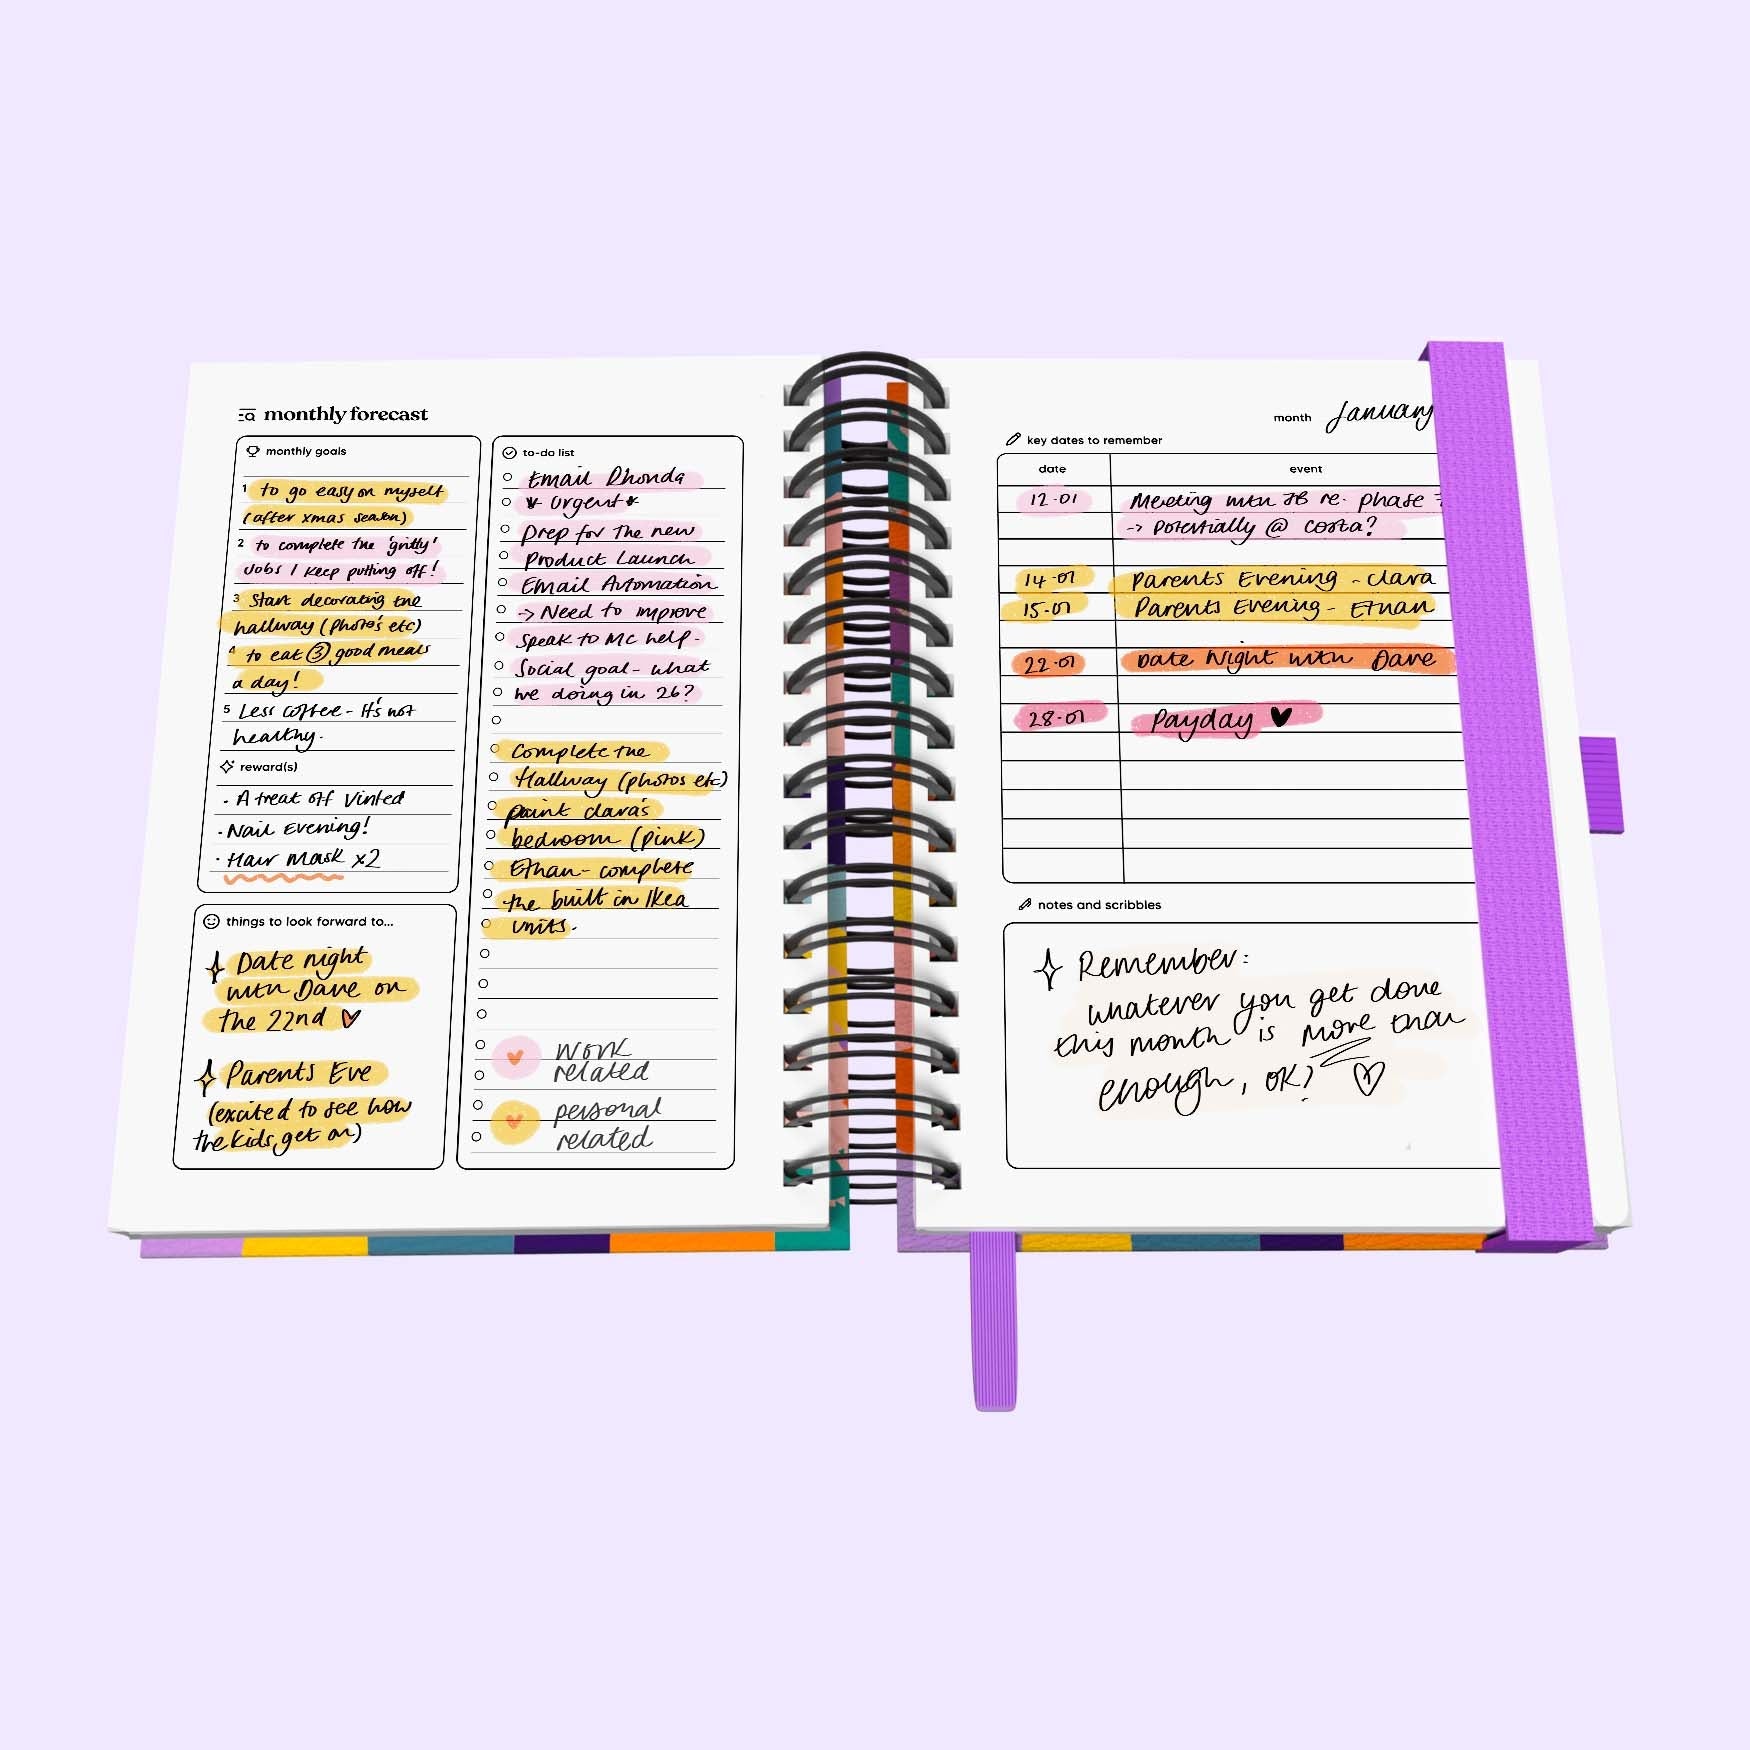 monthly forecast
monthly goals
1 to go easy on myself
(after xmas season)
2 to complete the 'gritty'
Jobs I keep putting off!
3 Start decorating the
hallway (photo's etc)
4 to eat 3 good meals
a day!
5 Less coffee - It's not
healthy.
reward(s)
- A treat off Vinted
- Nail Evening!
- Hair mask x2
things to look forward to...
Date night
with Dave on
the 22nd
Parents Eve
(excited to see how
the kids get on)
to-do list
Email Rhonda
* Urgent *
Prep for the new
Product Launch
Email Automation
-> Need to improve
Speak to MC help -
Social goal - what
we doing in 26?
Complete the
Hallway (photos etc)
paint clara's
bedroom (pink)
Ethan - complete
the built in Ikea
units.
work
related
personal
related
month January
key dates to remember
date event
12-01 Meeting with JB re. phase
-> Potentially @ costa?
14-01 Parents Evening - Clara
15-01 Parents Evening - Ethan
22-01 Date Night with Dave
28-01 Payday
notes and scribbles
Remember:
whatever you get done
this month is more than
enough, OK?